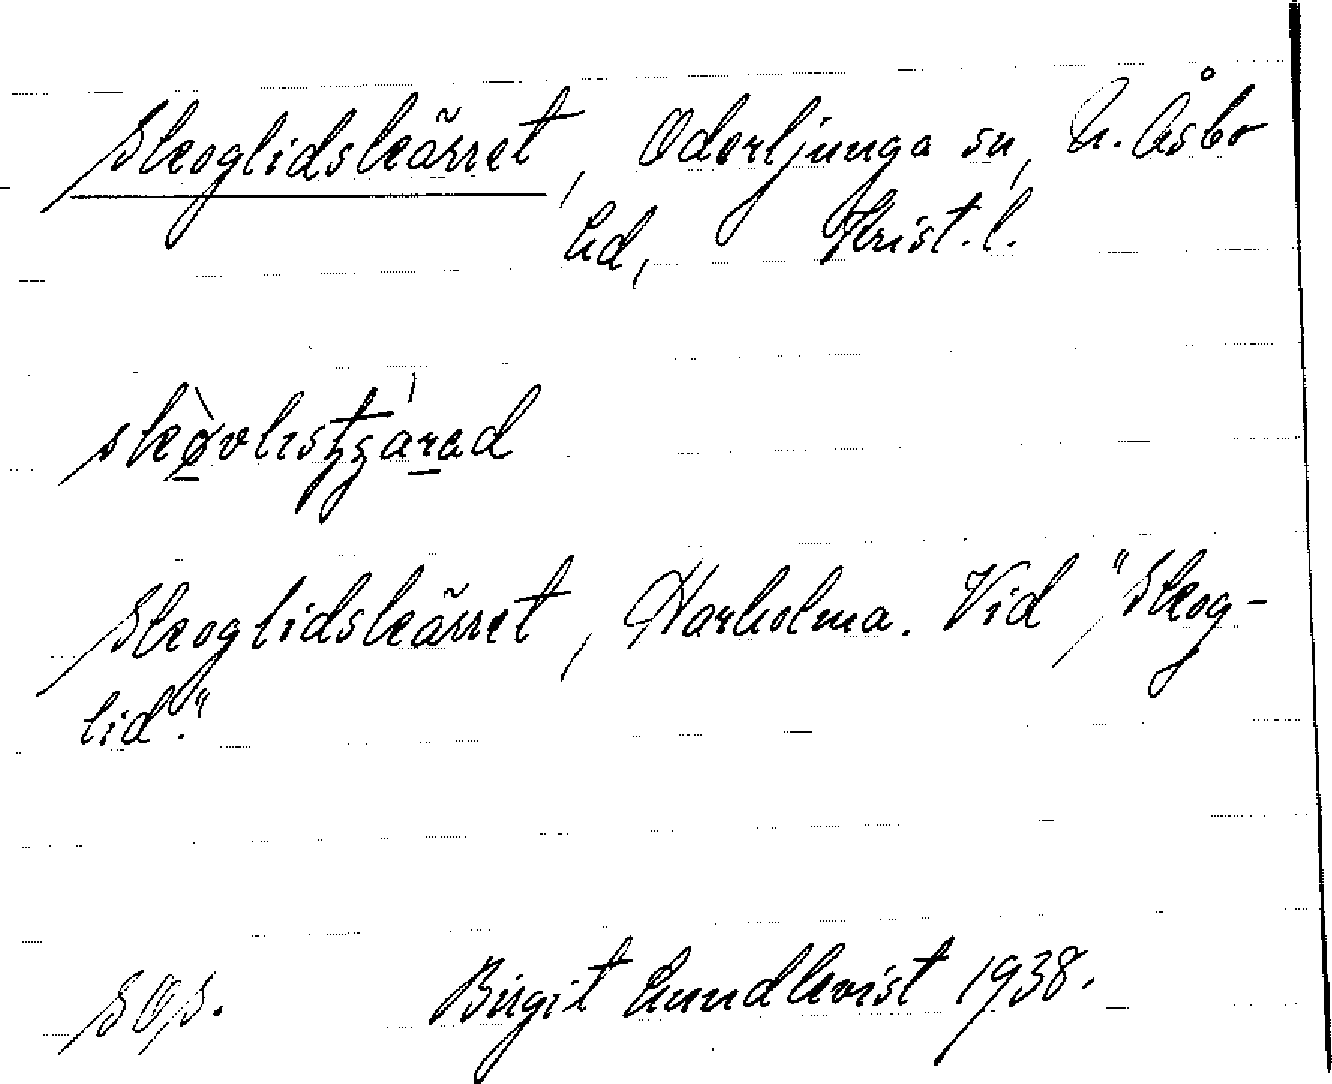 Skoglidskärret, Oderljunga sn, N. Åsbo
hd, Krist. l.
Skoglidskärret, Harholma. Vid "Skog-
lid".
Birgit Lundkvist 1938.